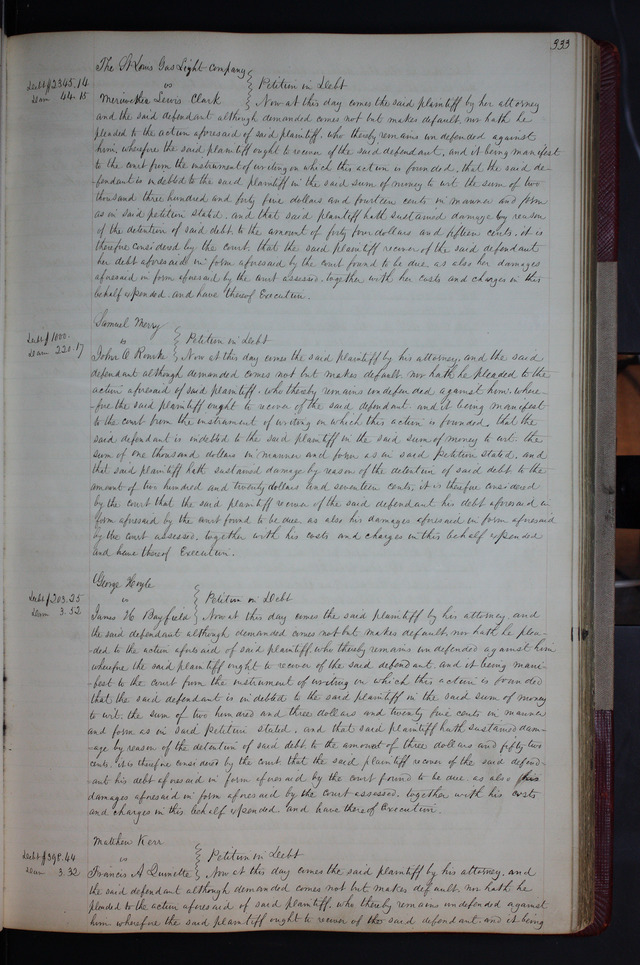 333
The St Louis Gas Light Company
Debt $2345.14 vs Petition in Debt
Dam 44.15 Meriwether Lewis Clark Now at this day comes the said plaintiff by her attorney
and the said defendant although demanded comes not but makes default, nor hath he
pleaded to the action aforesaid of said plaintiff, who thereby remains undefended against
him, wherefore the said plaintiff ought to recover of the said defendant, and it being manifest
to the court from the instrument of writing on which this action is founded, that the said de-
fendant is indebted to the said plaintiff in the said sum of money to wit the sum of two
thousand three hundred and forty five dollars and fourteen cents in manner and form
as in said petition stated. and that said plaintiff hath sustained damage by reason
of the detention of said debt, to the amount of forty four dollars and fifteen cents. it is
therefore considered by the court, that the said plaintiff recover of the said defendant
her debt aforesaid in form aforesaid by the court found to be due as also her damages
aforesaid in form aforesaid by the court assessed. together with her costs and charges in this
behalf expended. and have thereof Execution.
Samuel Merry
Debt $1000. vs Petition in Debt
Dam 220.17 John Q Now at this day comes the said plaintiff by his attorney, and the said
defendant although demanded comes not but makes default, nor hath he pleaded to the
action aforesaid of said plaintiff. who thereby remains undefended against him. where-
-fore the said plaintiff ought to recover of the said defendant. and it being manifest
to the court from the instrument of writing on which this action is founded, that the
said defendant is indebted to the said plaintiff in the said sum of money to wit. the
sum of one thousand dollars in manner and form as in said Petition stated, and
that said plaintiff hath sustained damage by reason of the detention of said debt to the
amount of two hundred and twenty dollars and seventeen cents, it is therefore considered
by the court that the said plaintiff recover of the said defendant his debt aforesaid in
form aforesaid by the court found to be due. as also his damages aforesaid in form aforesaid
by the court assessed, together with his costs and charges in this behalf expended
and have thereof Execution.
George Hoyle
Debt $203.25 vs Petition in Debt
Dam 3.52 James H Bayfield Now at this day comes the said plaintiff by his attorney, and
the said defendant although demanded comes not but makes default, nor hath he plea-
ded to the action aforesaid of said plaintiff, who thereby remains undefended against him
wherefore the said plaintiff ought to recover of the said defendant, and it being mani-
fest to the court from the instrument of writing on which this action is founded
that the said defendant is indebted to the said plaintiff in the said sum of money
to wit. the sum of two hundred and three dollars and twenty five cents in manner
and form as in said petition stated, and that said plaintiff hath sustained dam-
age by reason of the detention of said debt to the amount of three dollars and fifty two
cents. it is therefore considered by the court, that the said plaintiff recover of the said defend-
ant his debt aforesaid in form aforesaid by the court found to be due. as also his
damages aforesaid in form aforesaid by the court assessed. together with his costs
and charges in this behalf expended. and have thereof Execution.
Matthew Kerr
Debt $398.44 vs Petition in Debt
Dam 3.32 Francis A Now at this day comes the said plaintiff by his attorney, and
the said defendant although demanded comes not but makes default, nor hath he
pleaded to the action aforesaid of said plaintiff, who thereby remains undefended against
him wherefore the said plaintiff ought to recover of the said defendant. and it being